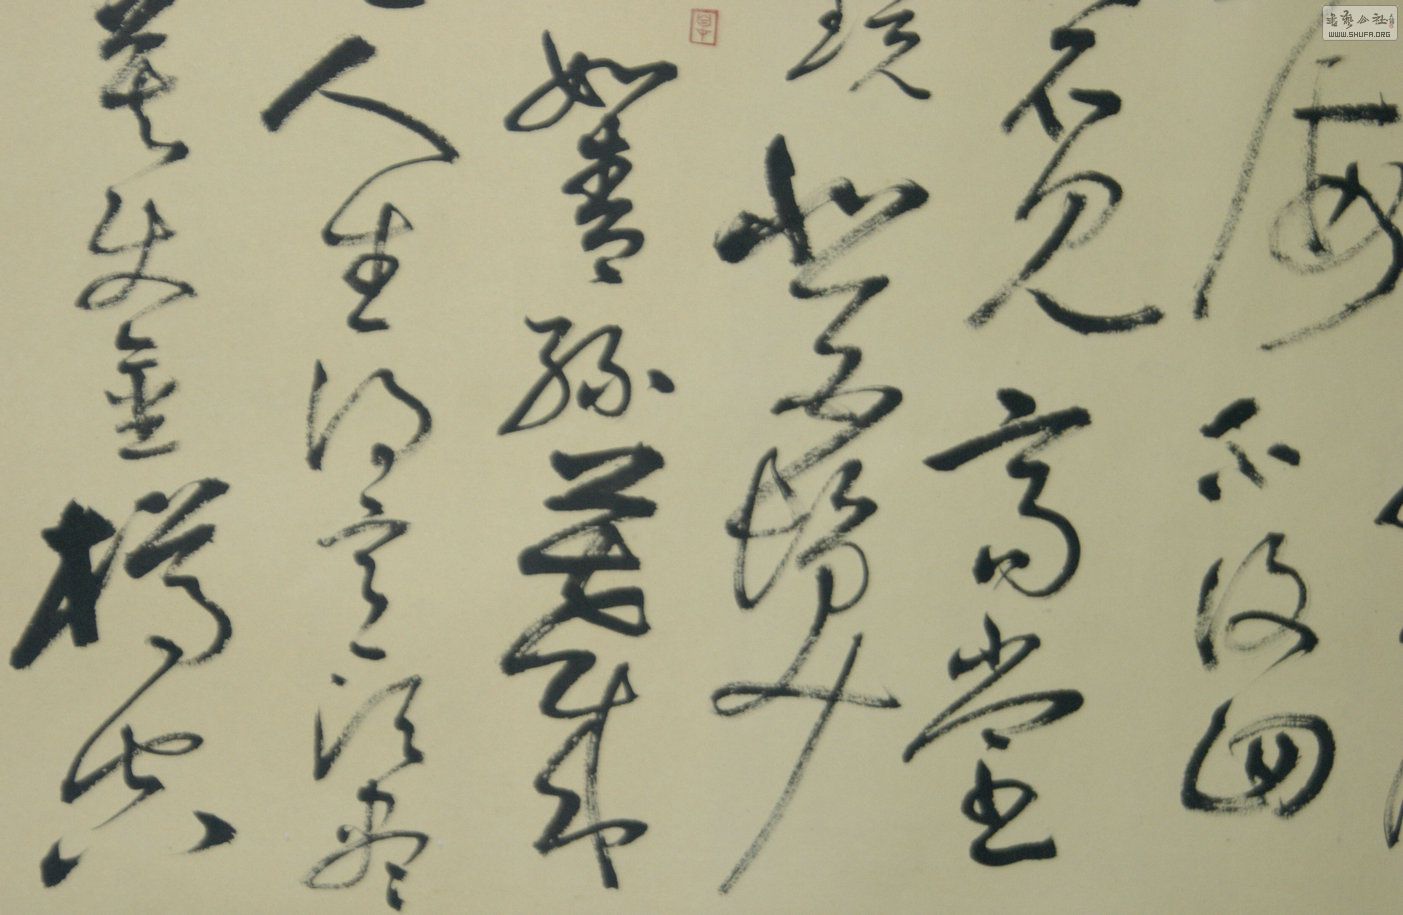 海不復回
不見高堂
鏡悲白髮
如青絲暮成
人生得意須盡
莫使金樽空
書藝公社
WWW.SHUFA.ORG